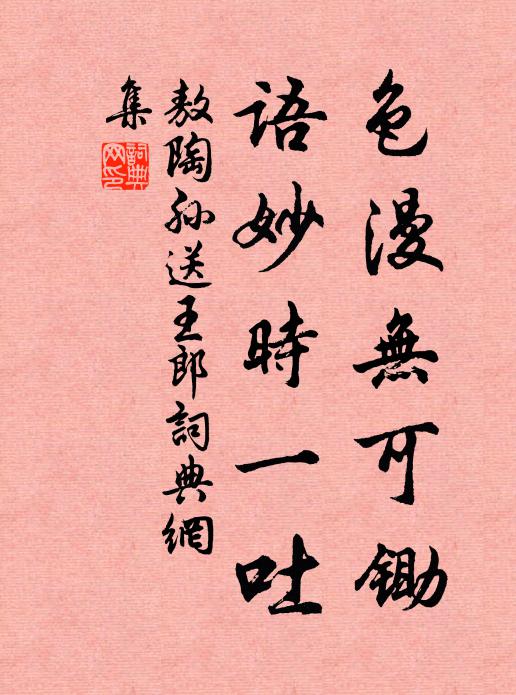 色漫無可鋤
語妙時一吐
敖陶孫送王郎詞典網
集
詞典網印